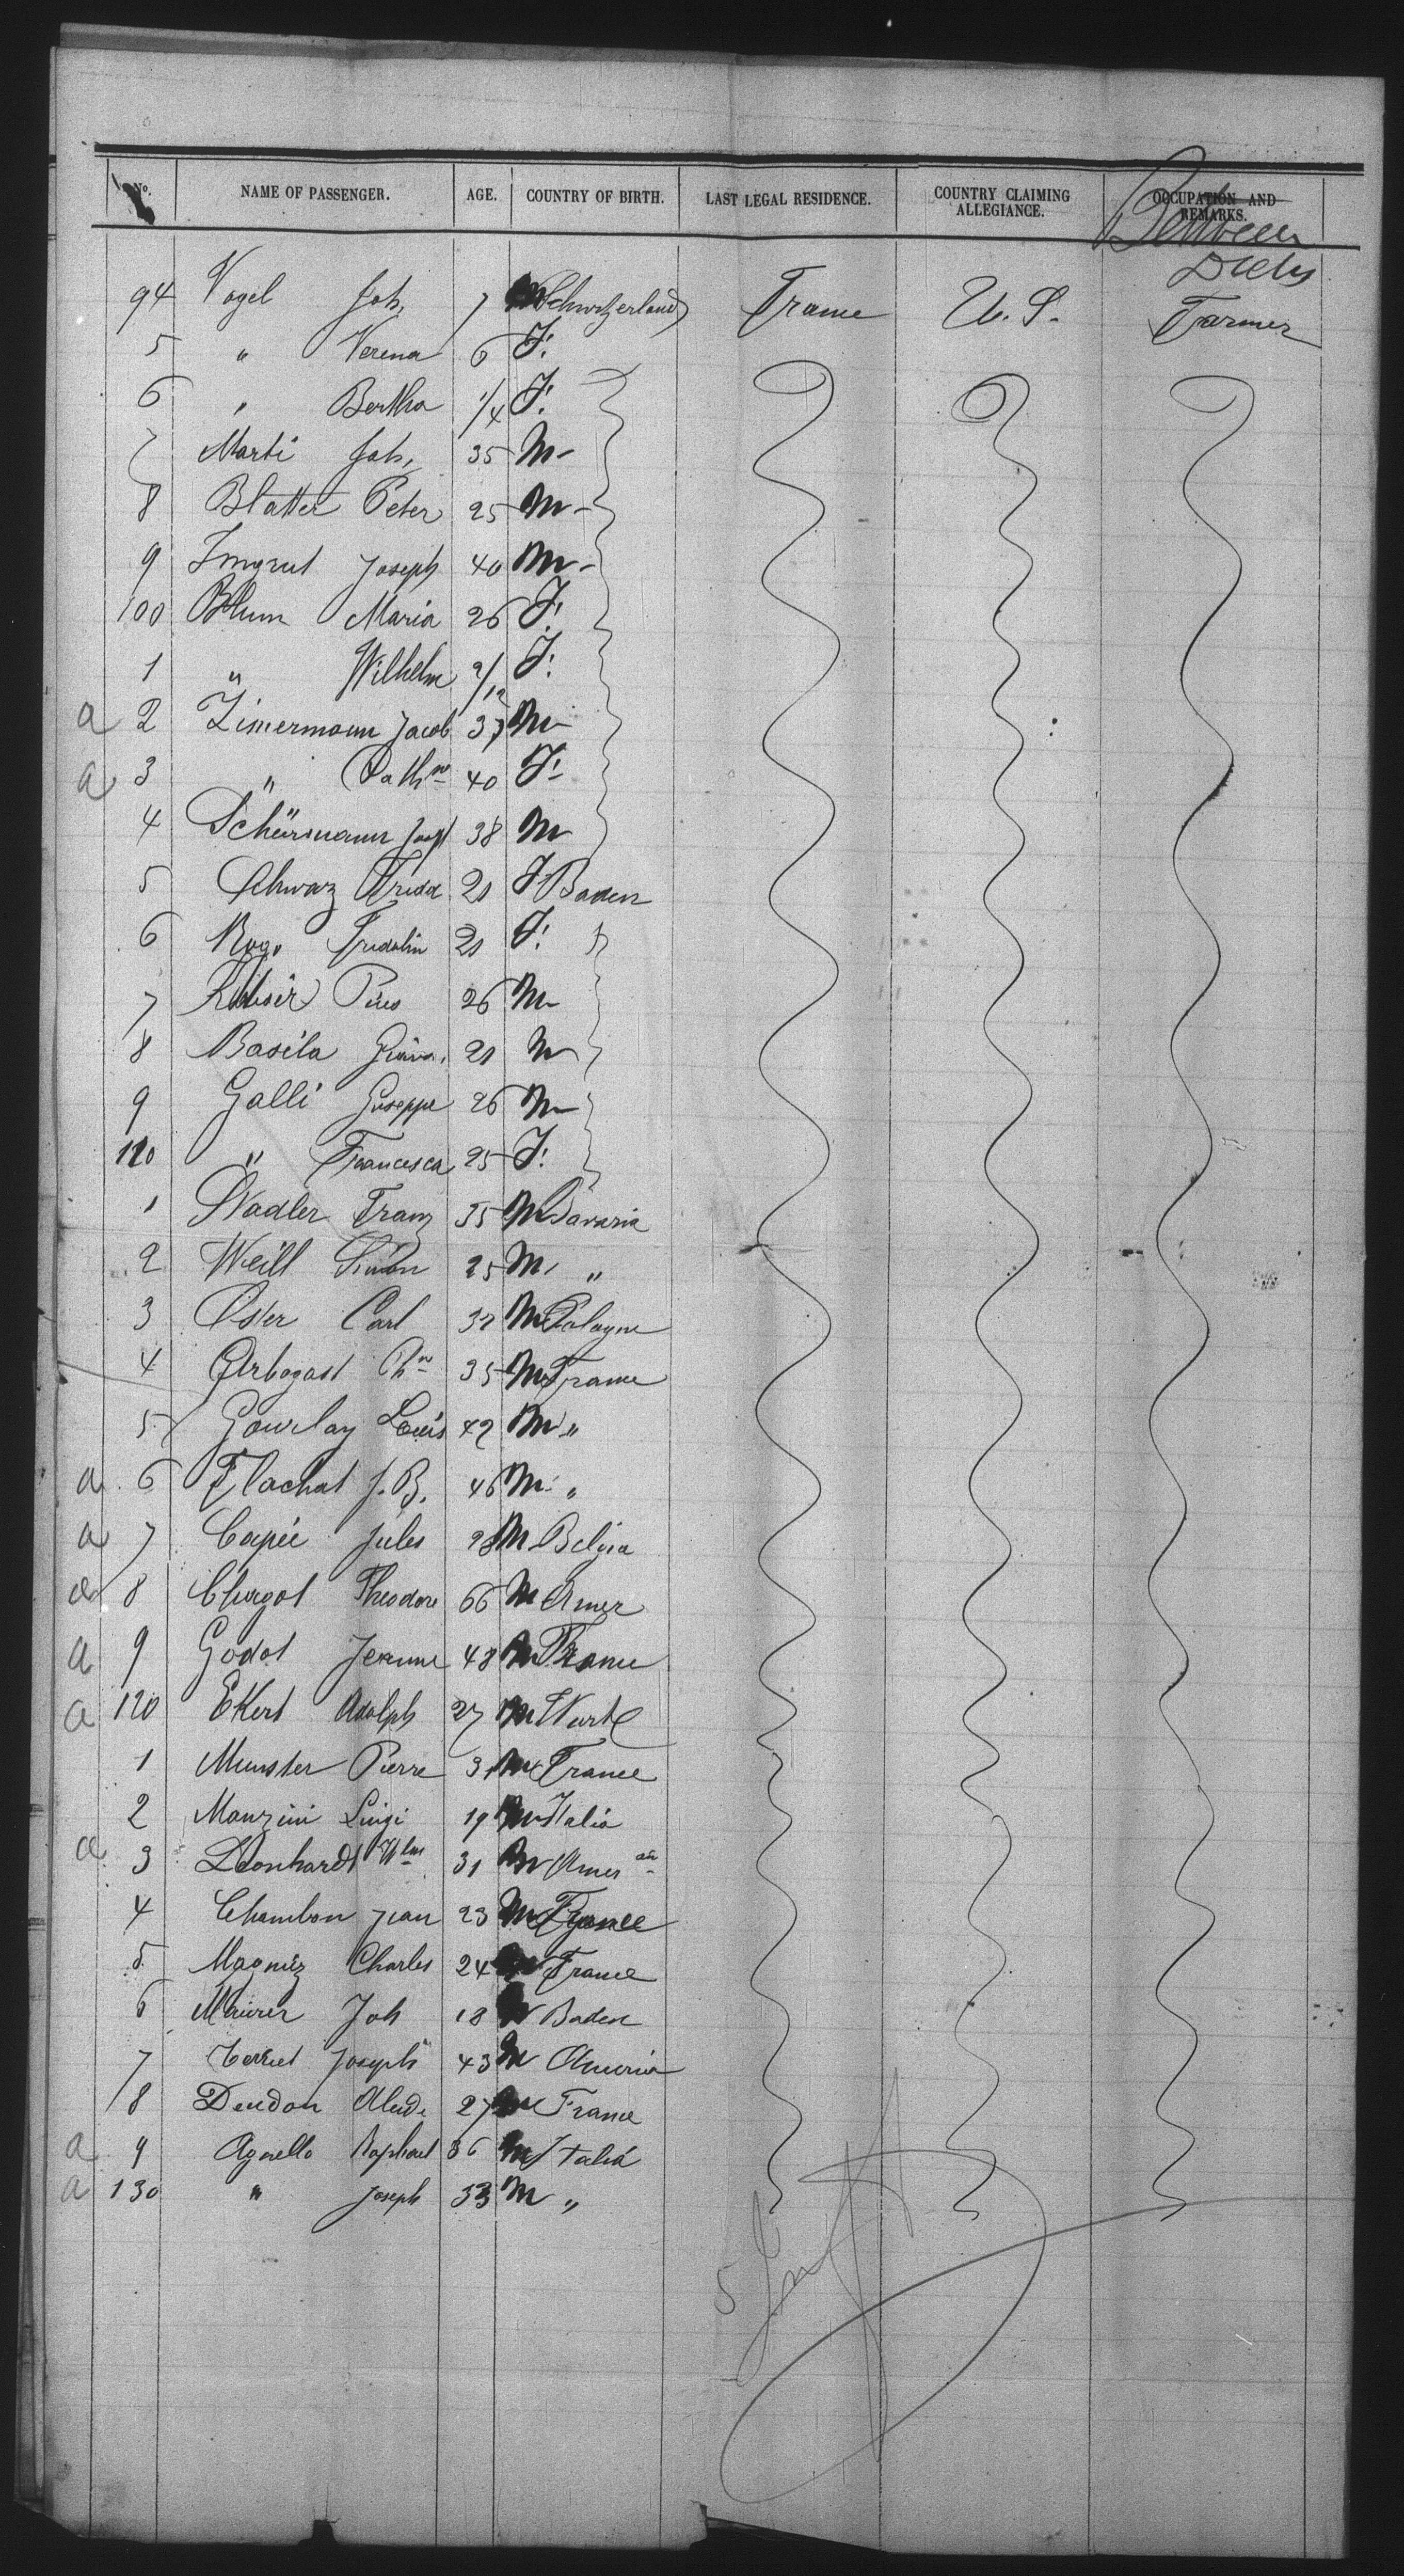 No. NAME OF PASSENGER. AGE. COUNTRY OF BIRTH. LAST LEGAL RESIDENCE. COUNTRY CLAIMING ALLEGIANCE. OCCUPATION AND REMARKS.
Between
Decks
94 Vogel Joh, 7 Schwitzerland France U.S. Farmer
5 " Verena 6 F.
6 " Bertha 1/4 F.
7 Marti Joh, 35 M
8 Blatter Peter 25 M
9 Imgrut Joseph 40 M
100 Blum Maria 26 F.
1 " Wilhelm 2/12 F.
a 2 Zimermann Jacob 37 M
a 3 " Cathne 40 F.
4 Schürmann Josf 38 M
5 Schwarz Frida 21 F Baden
6 Fridolin 21 F.
7 Pius 26 M
8 Basila 21 M
9 Galli Guseppe 26 M
110 " Francesca 25 F.
1 Stadler Franz 35 M Bavaria
2 Weill Simon 25 M "
3 Oster Carl 32 M Cologne
4 Arbogast 35 M France
5 Gourlay Louis 42 M "
a 6 Flachat J.B. 46 M "
a 7 Capée Jules 28 M Belgia
a 8 Theodore 66 M Amer
a 9 Godot Jeanne 48 M France
a 120 Ekert Adolph 27 M Wurt
1 Munster Pierre 31 M France
2 Manzini Luigi 19 M Italia
a 3 Leonhardt Wlm 31 M Amer an
4 Chambon Jean 23 M France
5 Magniez Charles 24 M France
6 Maurer Joh 18 M Baden
7 Joseph 43 M America
8 Deudon 27 M France
a 9 Agnello Raphael 36 M Italia
a 130 " Joseph 33 M "